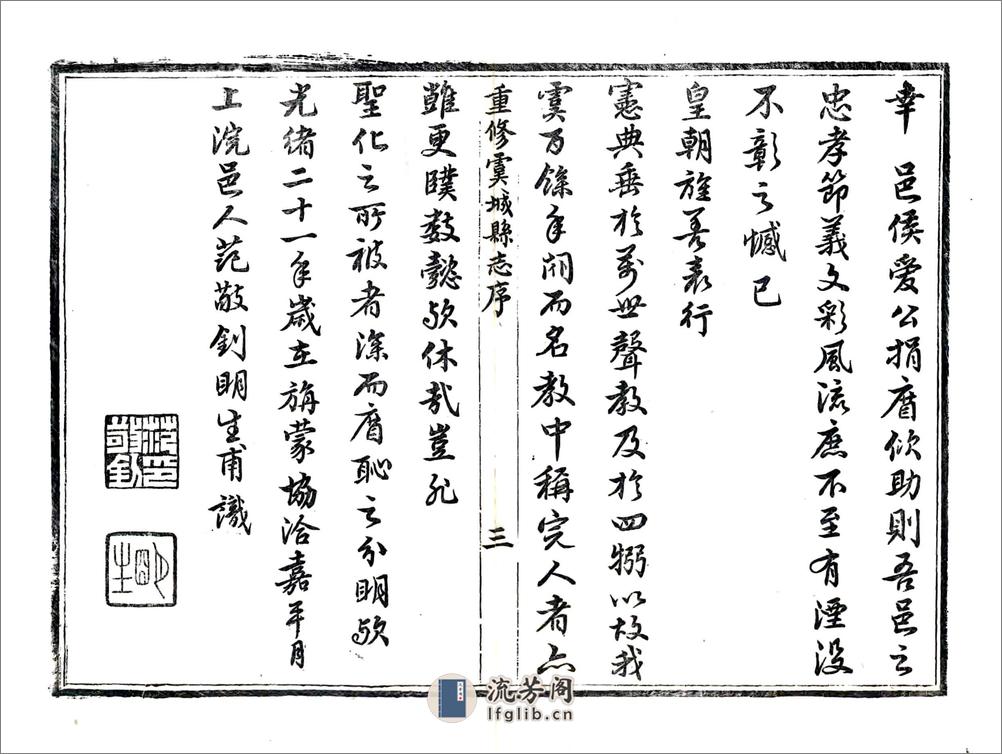 幸　邑侯愛公捐廉佽助則吾邑之
忠孝節義文彩風流庶不至有湮沒
不彰之憾已
皇朝旌善表行
憲典垂於萬世聲教及於四弼以故我
虞百餘年間而名教中稱完人者亦
重修虞城縣志序
三
雖更僕數懿歟休哉豈非
聖化之所被者深而廉恥之分明歟
光緒二十一年歲在旃蒙協洽嘉平月
上浣邑人范敬釗明生甫識
范印敬釗
明生
流芳阁
lfglib.cn